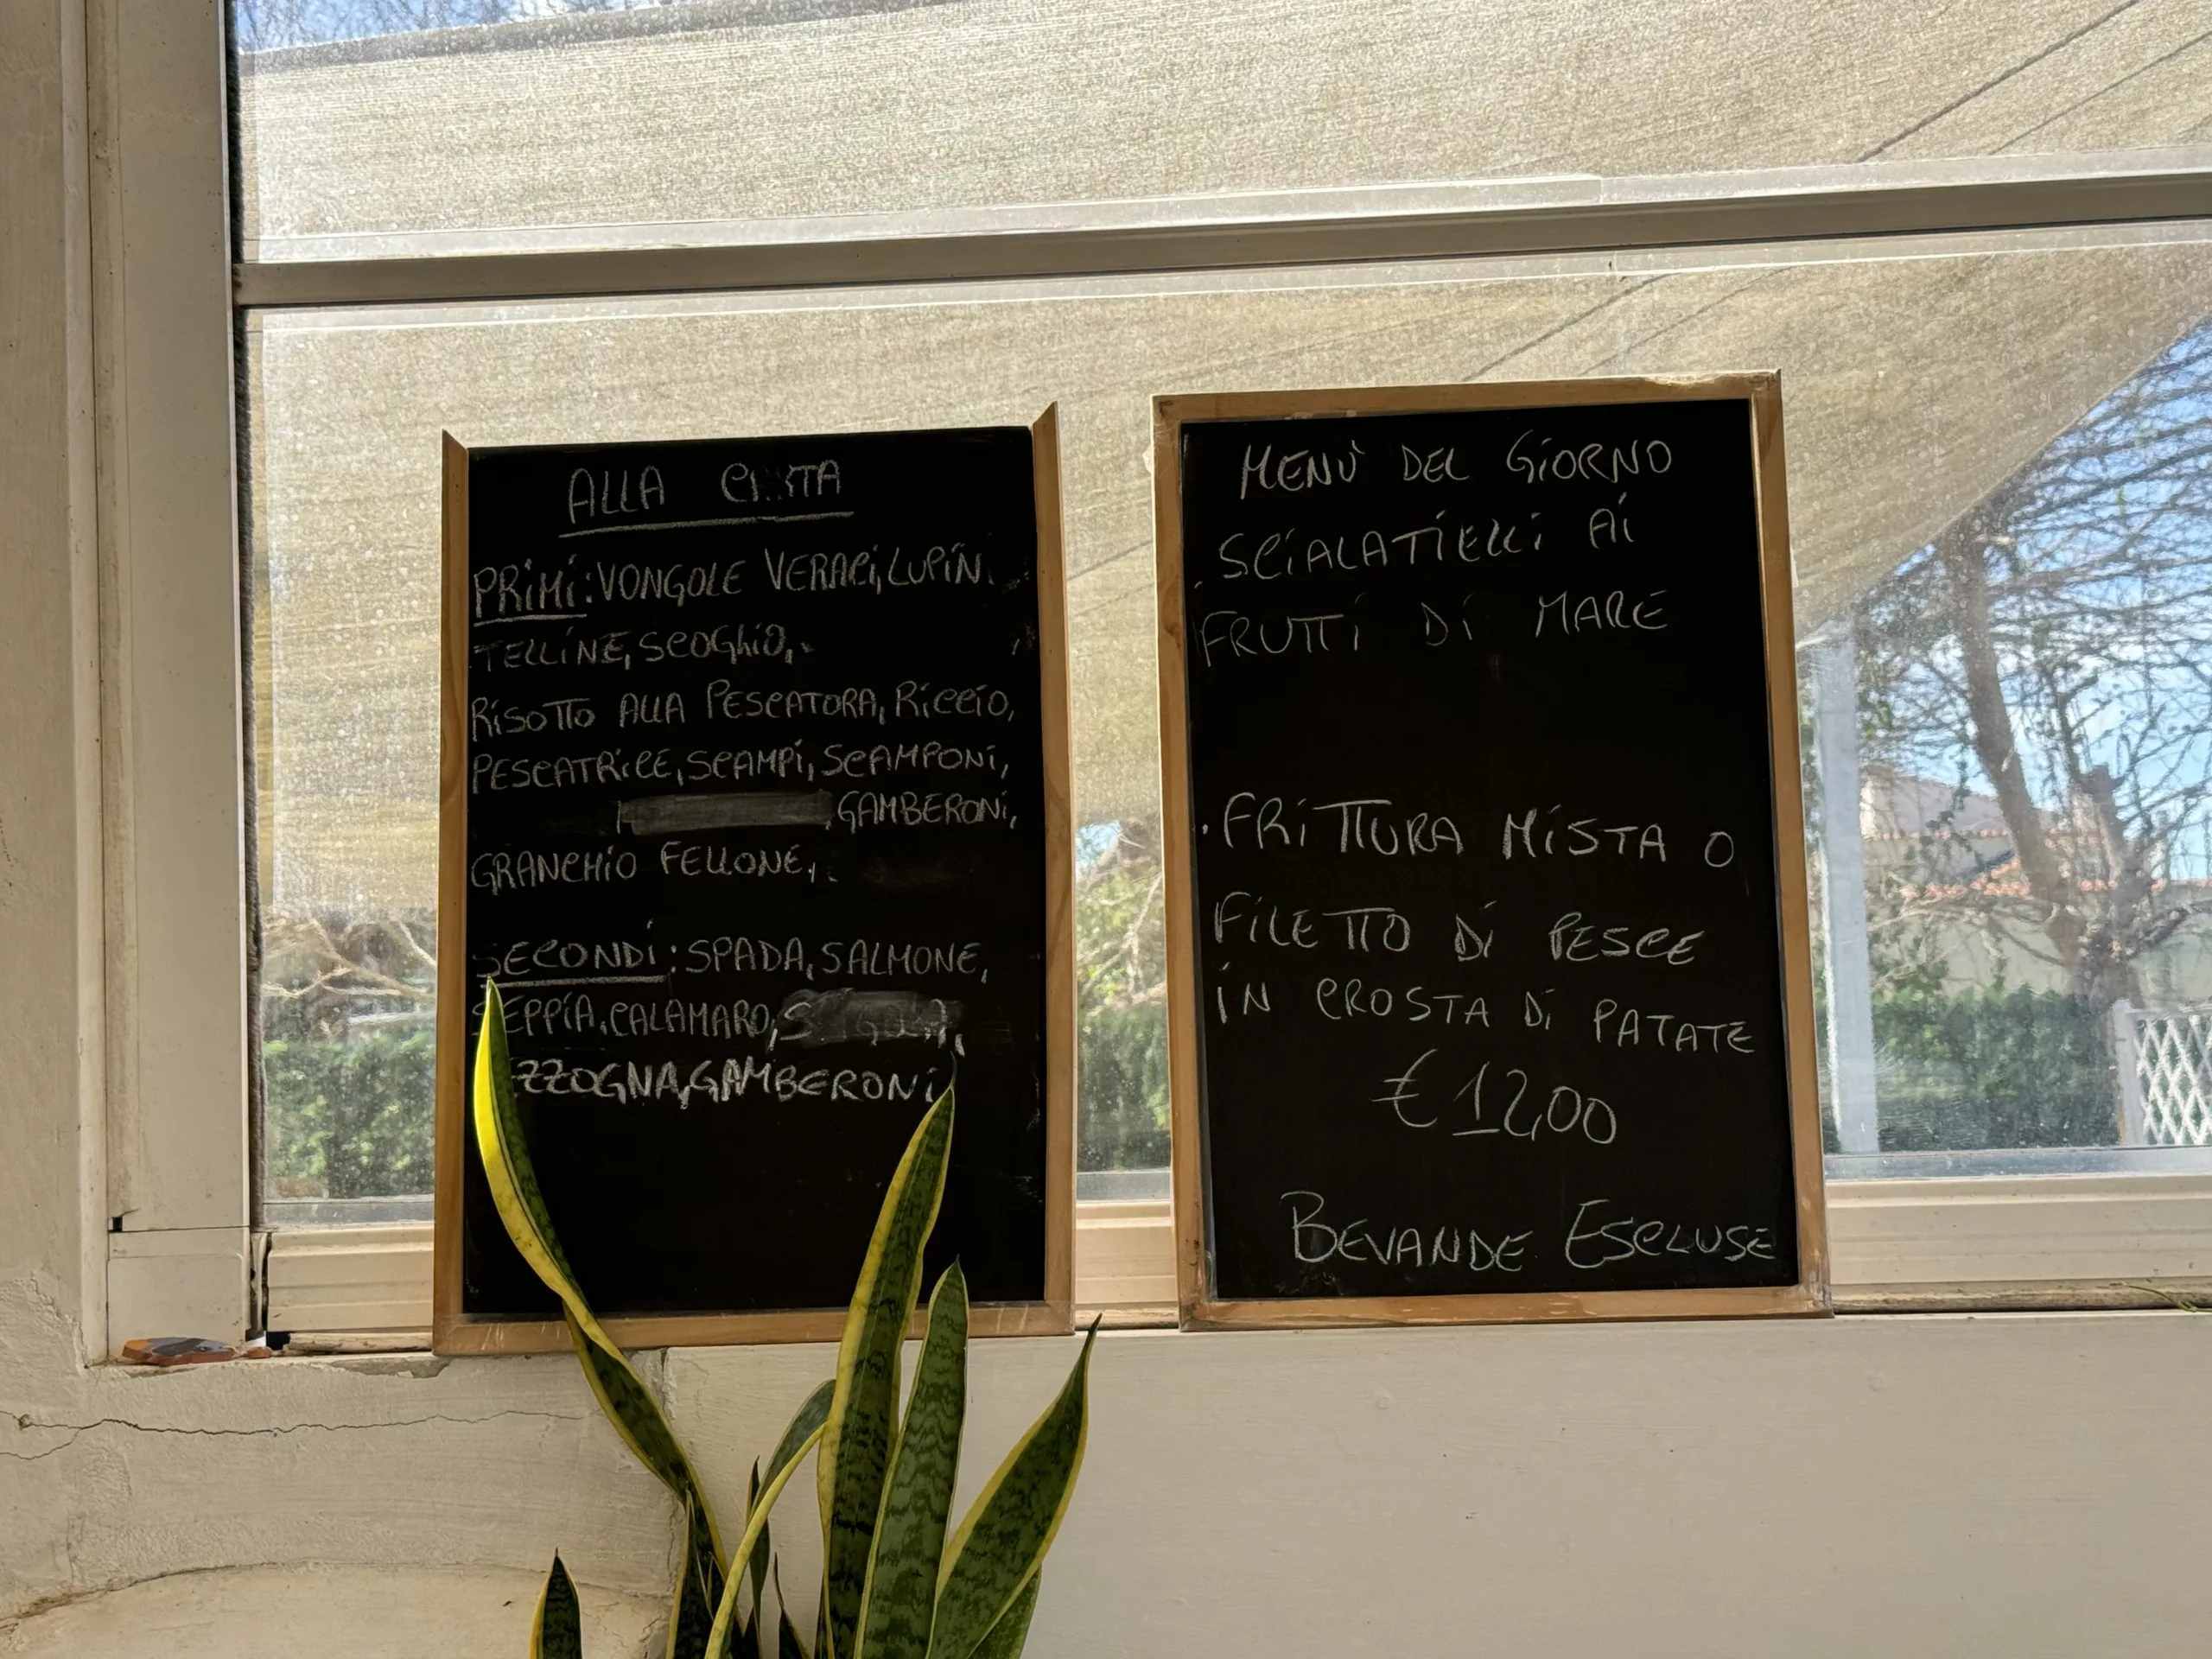 ALLA CARTA
PRIMI: VONGOLE VERACI, LUPINI
TELLINE, SCOGLIO,
RISOTTO ALLA PESCATORA, RICCIO,
PESCATRICE, SCAMPI, SCAMPONI,
, GAMBERONI,
GRANCHIO FELLONE,
SECONDI: SPADA, SALMONE,
SEPPIA, CALAMARO,
GAMBERONI
MENÙ DEL GIORNO
. SCIALATIELLI AI
FRUTTI DI MARE
. FRITTURA MISTA O
FILETTO DI PESCE
IN CROSTA DI PATATE
€ 12,00
BEVANDE ESCLUSE